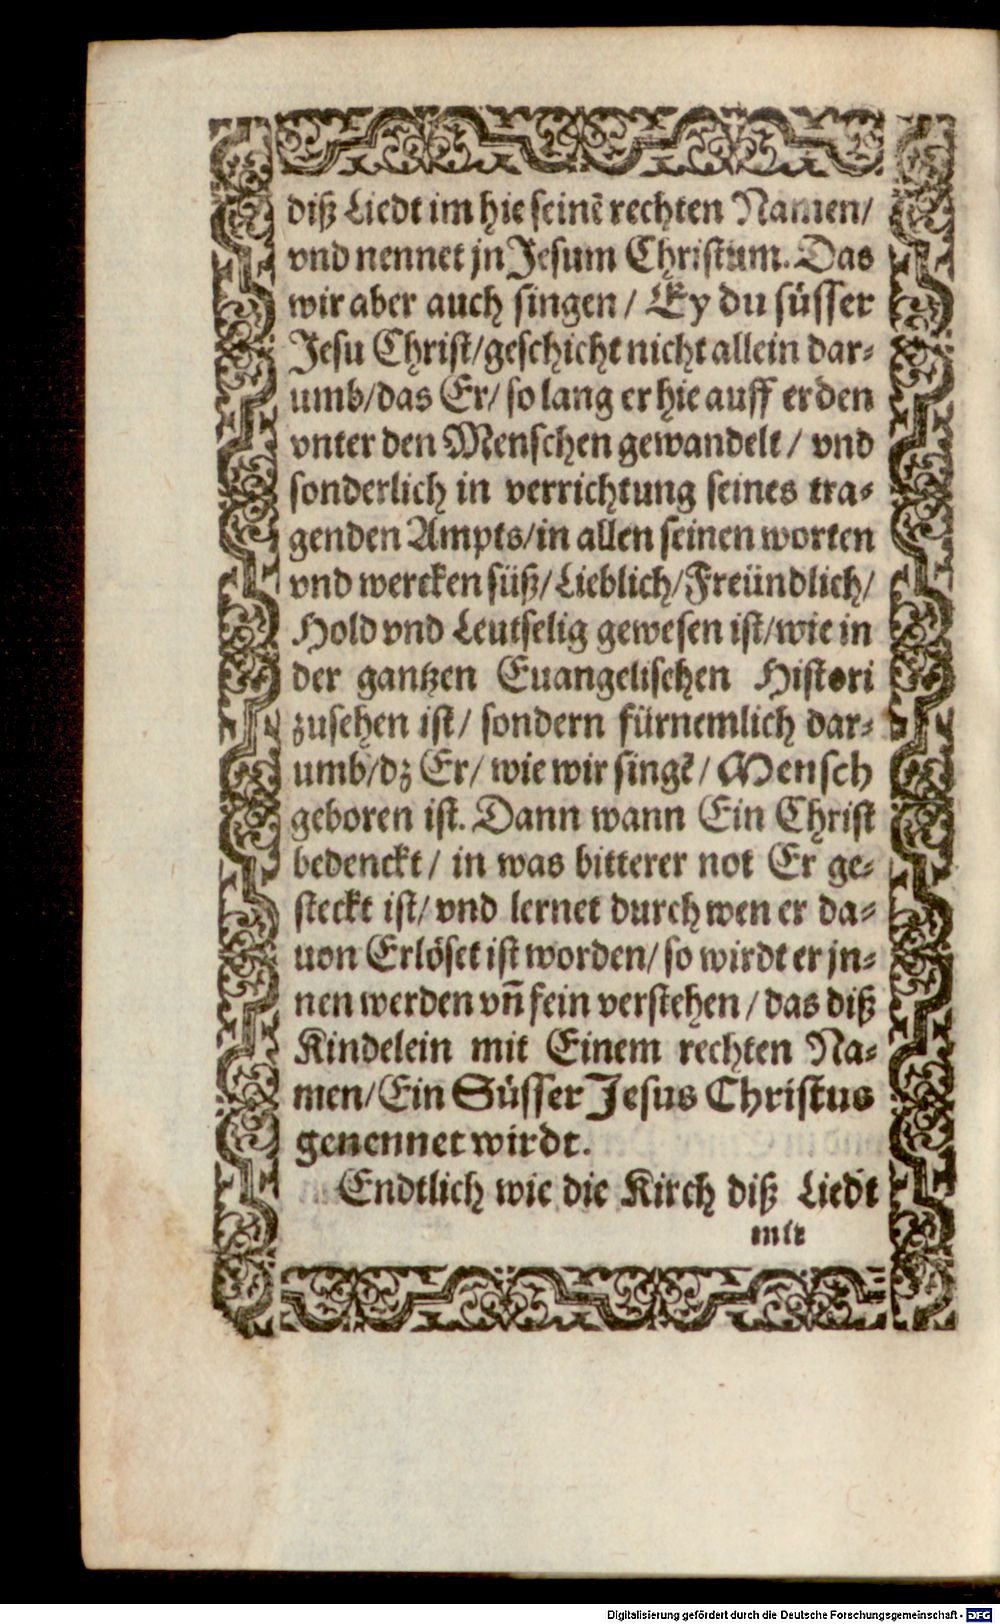 diß Liedt im hie seinē rechten Namen/
vnd nennet jn Jesum Christum. Das
wir aber auch singen/ Ey du süsser
Jesu Christ/geschicht nicht allein dar⸗
umb/das Er/ so lang er hie auff erden
vnter den Menschen gewandelt/ vnd
sonderlich in verrichtung seines tra⸗
genden Ampts/in allen seinen worten
vnd wercken süß/Lieblich/Freündlich/
Hold vnd Leutselig gewesen ist/wie in
der gantzen Euangelischen Histori
zusehen ist/ sondern fürnemlich dar⸗
umb/dz Er/ wie wir singē/ Mensch
geboren ist. Dann wann Ein Christ
bedenckt/ in was bitterer not Er ge⸗
steckt ist/ vnd lernet durch wen er da⸗
uon Erlöset ist worden/ so wirdt er jn⸗
nen werden vñ fein verstehen/ das diß
Kindelein mit Einem rechten Na⸗
men/Ein Süsser Jesus Christus
genennet wirdt.
Endtlich wie die Kirch diß Liedt
mit
Digitalisierung gefördert durch die Deutsche Forschungsgemeinschaft - DFG